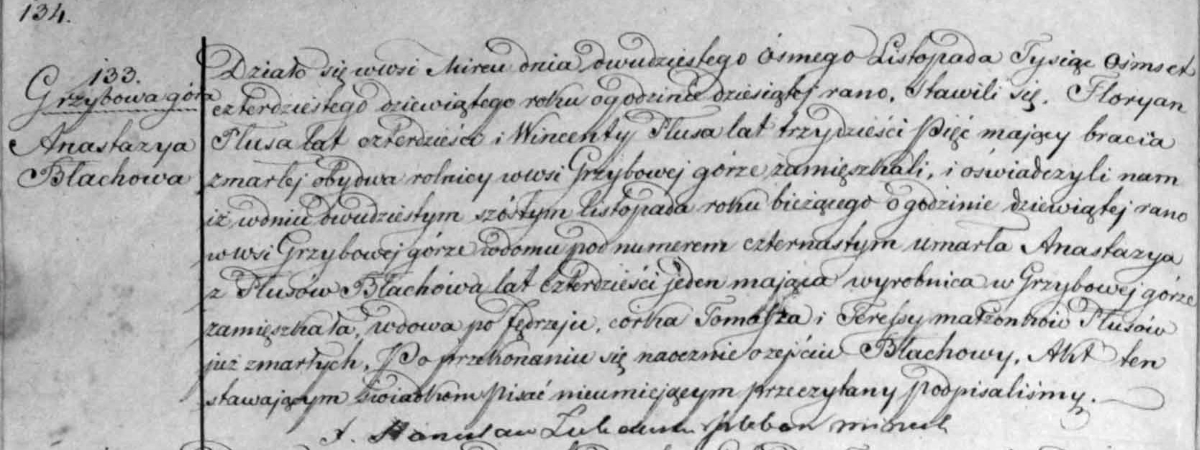 134.
133.
Grzybowa góra
Anastazya
Błachowa
Działo się wwsi Mircu dnia dwudziestego Osmego Listopada Tysiąc Osmset
czterdziestego dziewiątego roku ogodzinie dziesiątej rano, Stawili się, Floryan
Plusa lat czterdzieści i Wincenty Plusa lat trzydzieści Pięć mający bracia
zmarłej obydwa rolnicy wwsi Grzybowej górze zamięszkali, i oświadczyli nam
iż wdniu dwudziestym szóstym listopada roku bieżącego o godzinie dziewiątej rano
wwsi Grzybowej górze wdomu pod numerem czternastym umarła Anastazya
z Plusów Błachowa lat czterdzieści jeden mająca wyrobnica w Grzybowej górze
zamięszkała, wdowa po Jędrzeju, corka Tomasza i Teressy małżonków Plusów
już zmarłych, Po przekonaniu się naocznie o zejściu Błachowy, Akt ten
stawającym Swiadkom pisać nieumiejącym przeczytany podpisaliśmy.
X. Stanisław